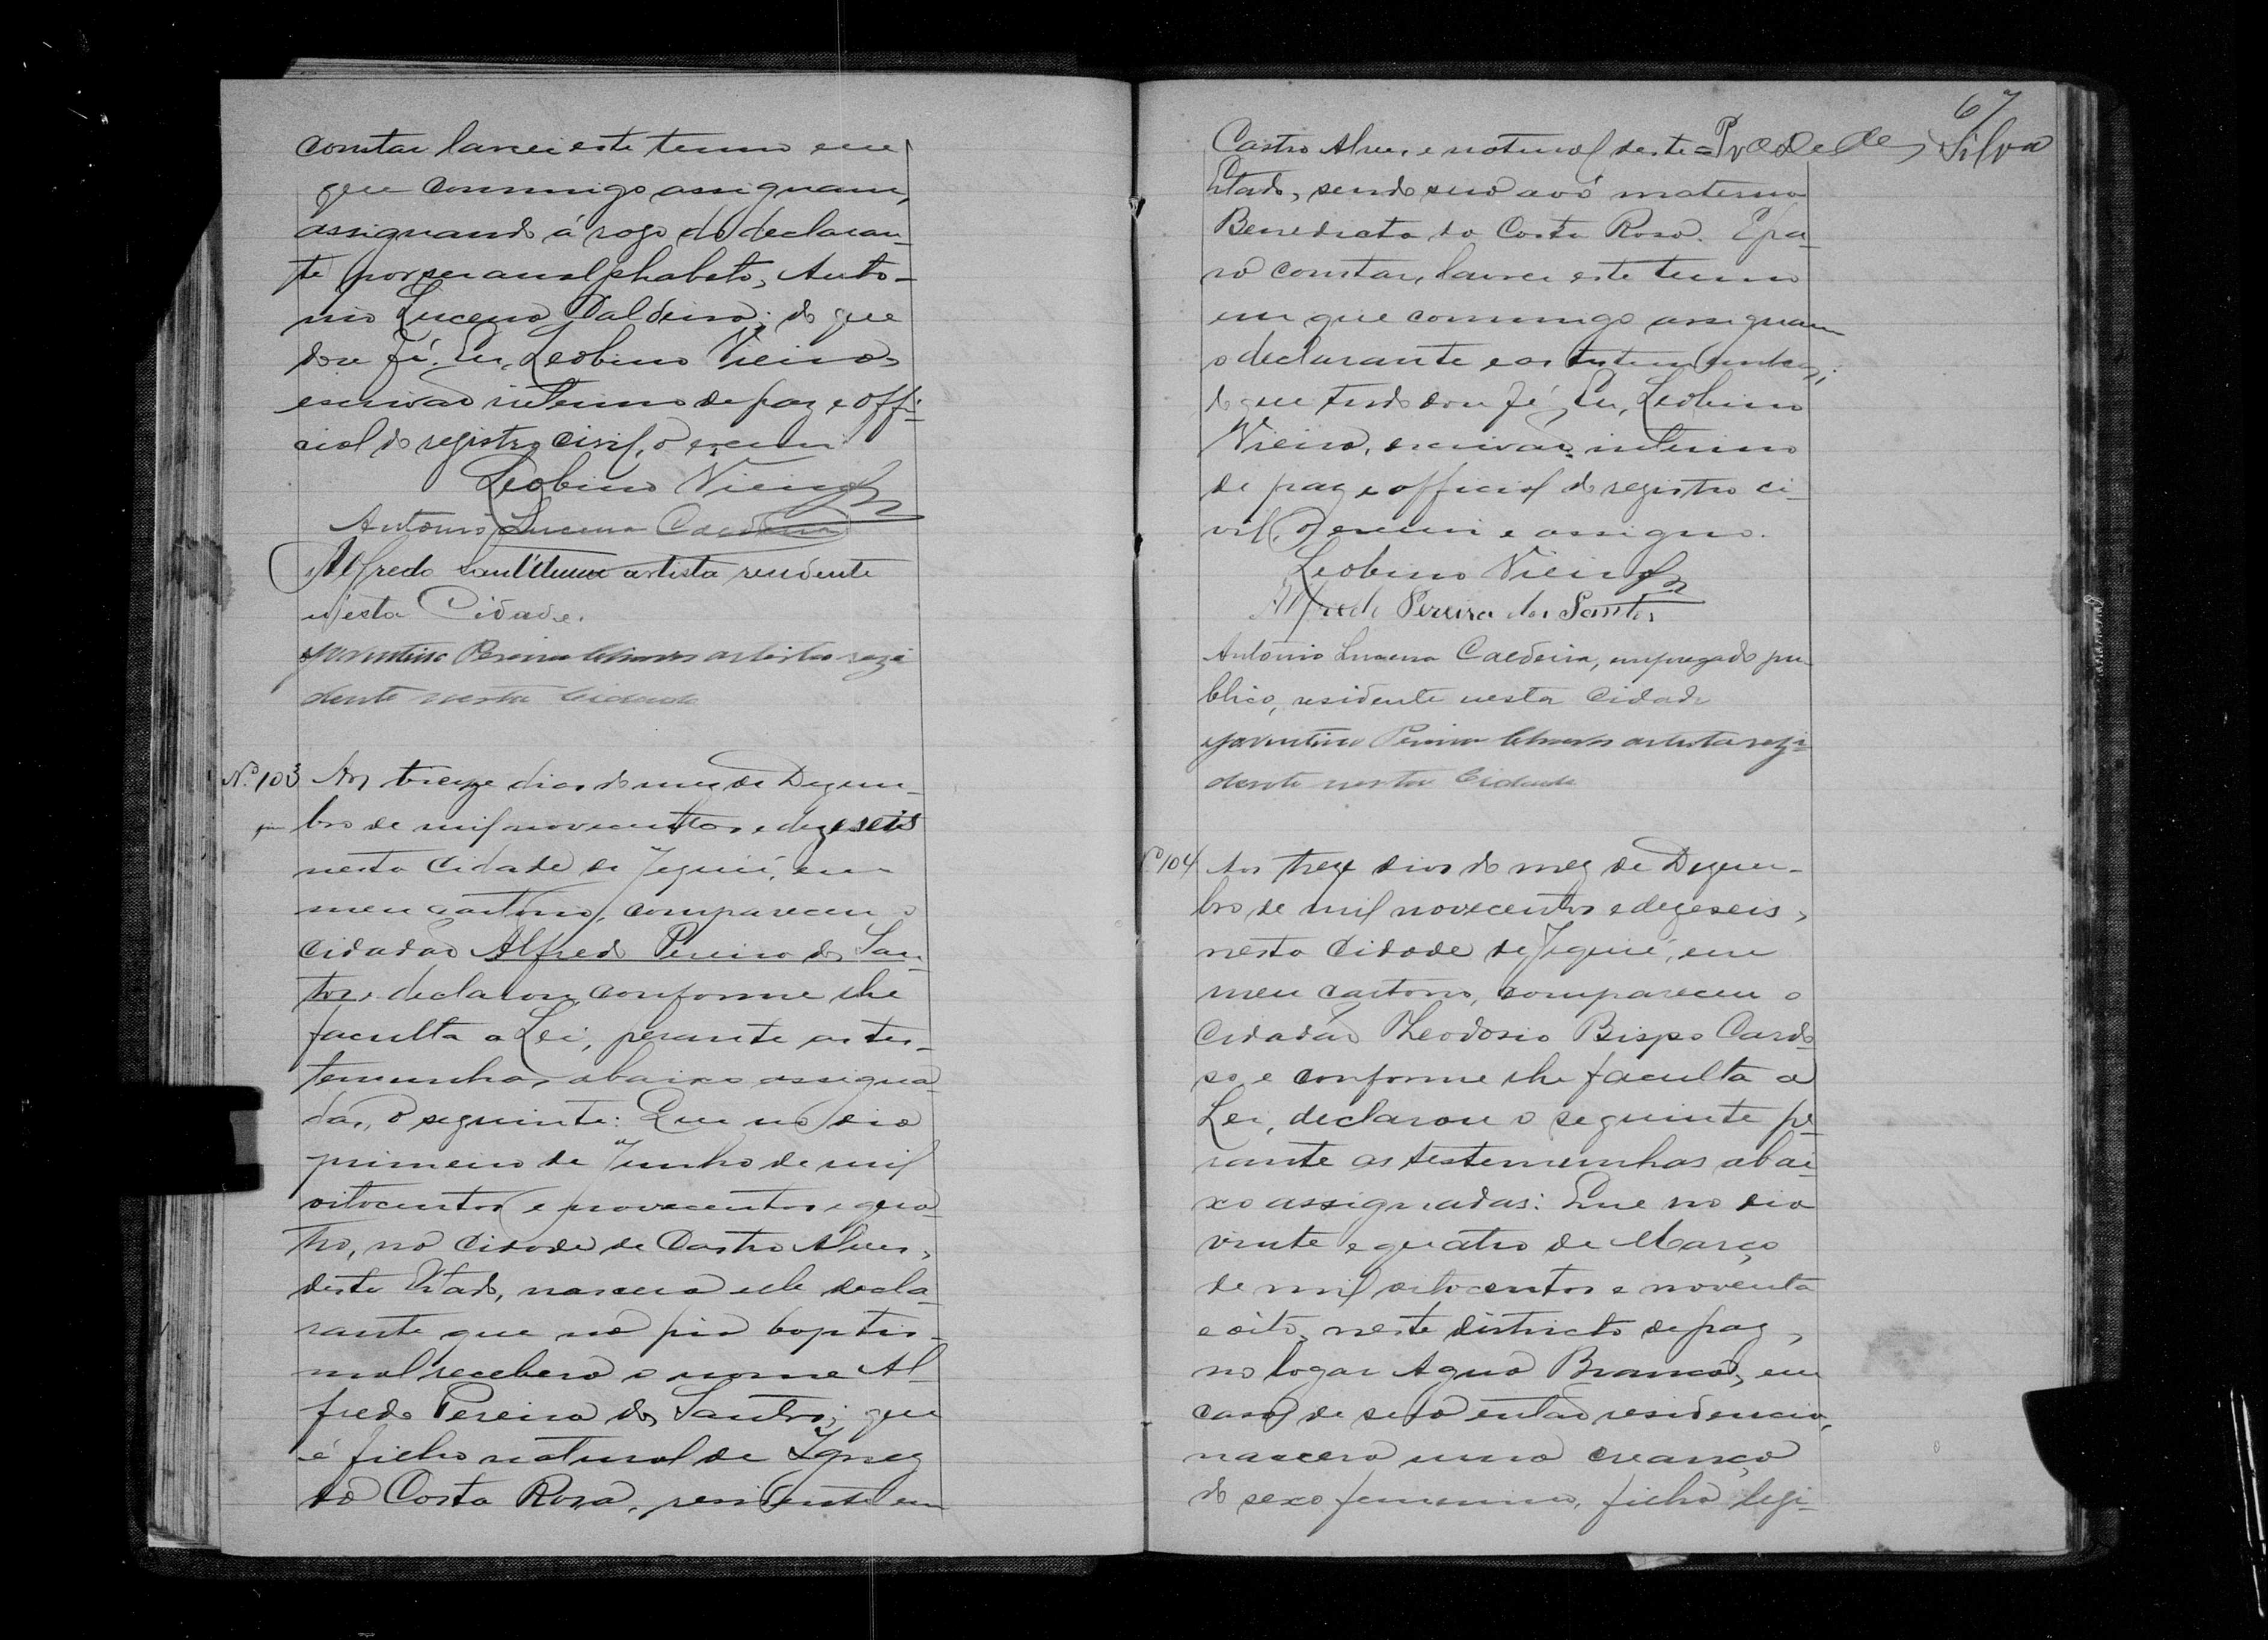 constar lavrei este termo em
que commigo assignam,
assignando á rogo do declaran-
te por ser analphabeto, Anto-
nio Lucena Caldeira; do que
dou fé. Eu, Leobino Vieira,
escrivão interino de paz e offi-
cial do registro civil, o escrevi.
Leobino Vieira
Antonio Lucena Caldeira
Alfredo artista residente
n'esta Cidade.
Juventino Pereira artista rezi
dente nesta Cidade
Nº 103 Aos treze dias do mez de Dezem-
bro de mil novecentos e dezeseis
nesta Cidade de Jequié, em
meu cartorio, compareceu o
cidadão Alfredo Pereira dos San-
tos e declarou, conforme lhe
faculta a Lei, perante as tes-
temunhas abaixo assigna-
das, o seguinte: Que no dia
primeiro de Junho de mil
oitocentos e novecentos e qua-
tro, na Cidade de Castro Alves,
deste Estado, nascera elle decla-
rante que na pia baptis-
mal recebera o nome Al-
fredo Pereira dos Santos; que
é filho natural de Ignez
da Costa Rosa, residente em
67
Castro Alves, e natural deste = Silva
Estado, sendo sua avó materna
Benedicta da Costa Rosa. E pa-
ra constar, lavrei este termo
em que commigo assignam
o declarante e as testemunhas;
do que tudo dou fé. Eu, Leobino
Vieira, escrivão interino
de paz e official do registro ci-
vil, o escrevi e assigno.
Leobino Vieira
Alfredo Pereira dos Santos
Antonio Lucena Caldeira, empregado pu-
blico, residente nesta Cidade
Juventino Pereira artista rezi-
dente nesta Cidade
Nº 104 Aos treze dias do mez de Dezem-
bro de mil novecentos e dezeseis,
nesta Cidade de Jequié, em
meu cartorio, compareceu o
Cidadão Theodosio Bispo Cardo-
so e conforme lhe faculta a
Lei, declarou o seguinte pe-
rante as testemunhas abai-
xo assignadas: Que no dia
vinte e quatro de Março
de mil oitocentos e noventa
e oito, neste districto de paz,
no logar Agua Branca, em
casa de sua então residencia,
nascera uma creança
do sexo feminino, filha legi-